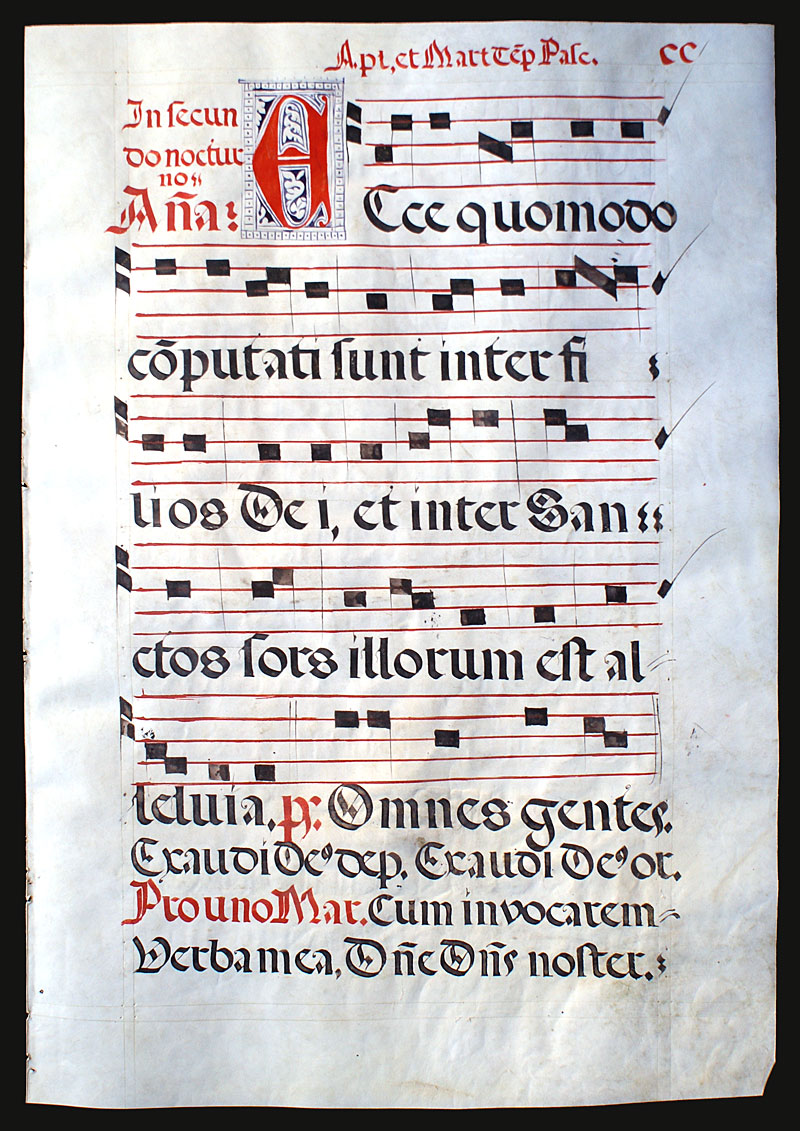 Apl, et Mart Tēp Pasc. CC
In secun
do noctur
nos
Aña:
ECce quomodo
cōputati sunt inter fi
lios Dei, et inter San
ctos sors illorum est al
leluia. ps: Omnes gentes.
Exaudi De9 dep. Exaudi De9 or.
Pro uno Mar. Cum invocarem
Verba mea, Dñe Dñs noster.